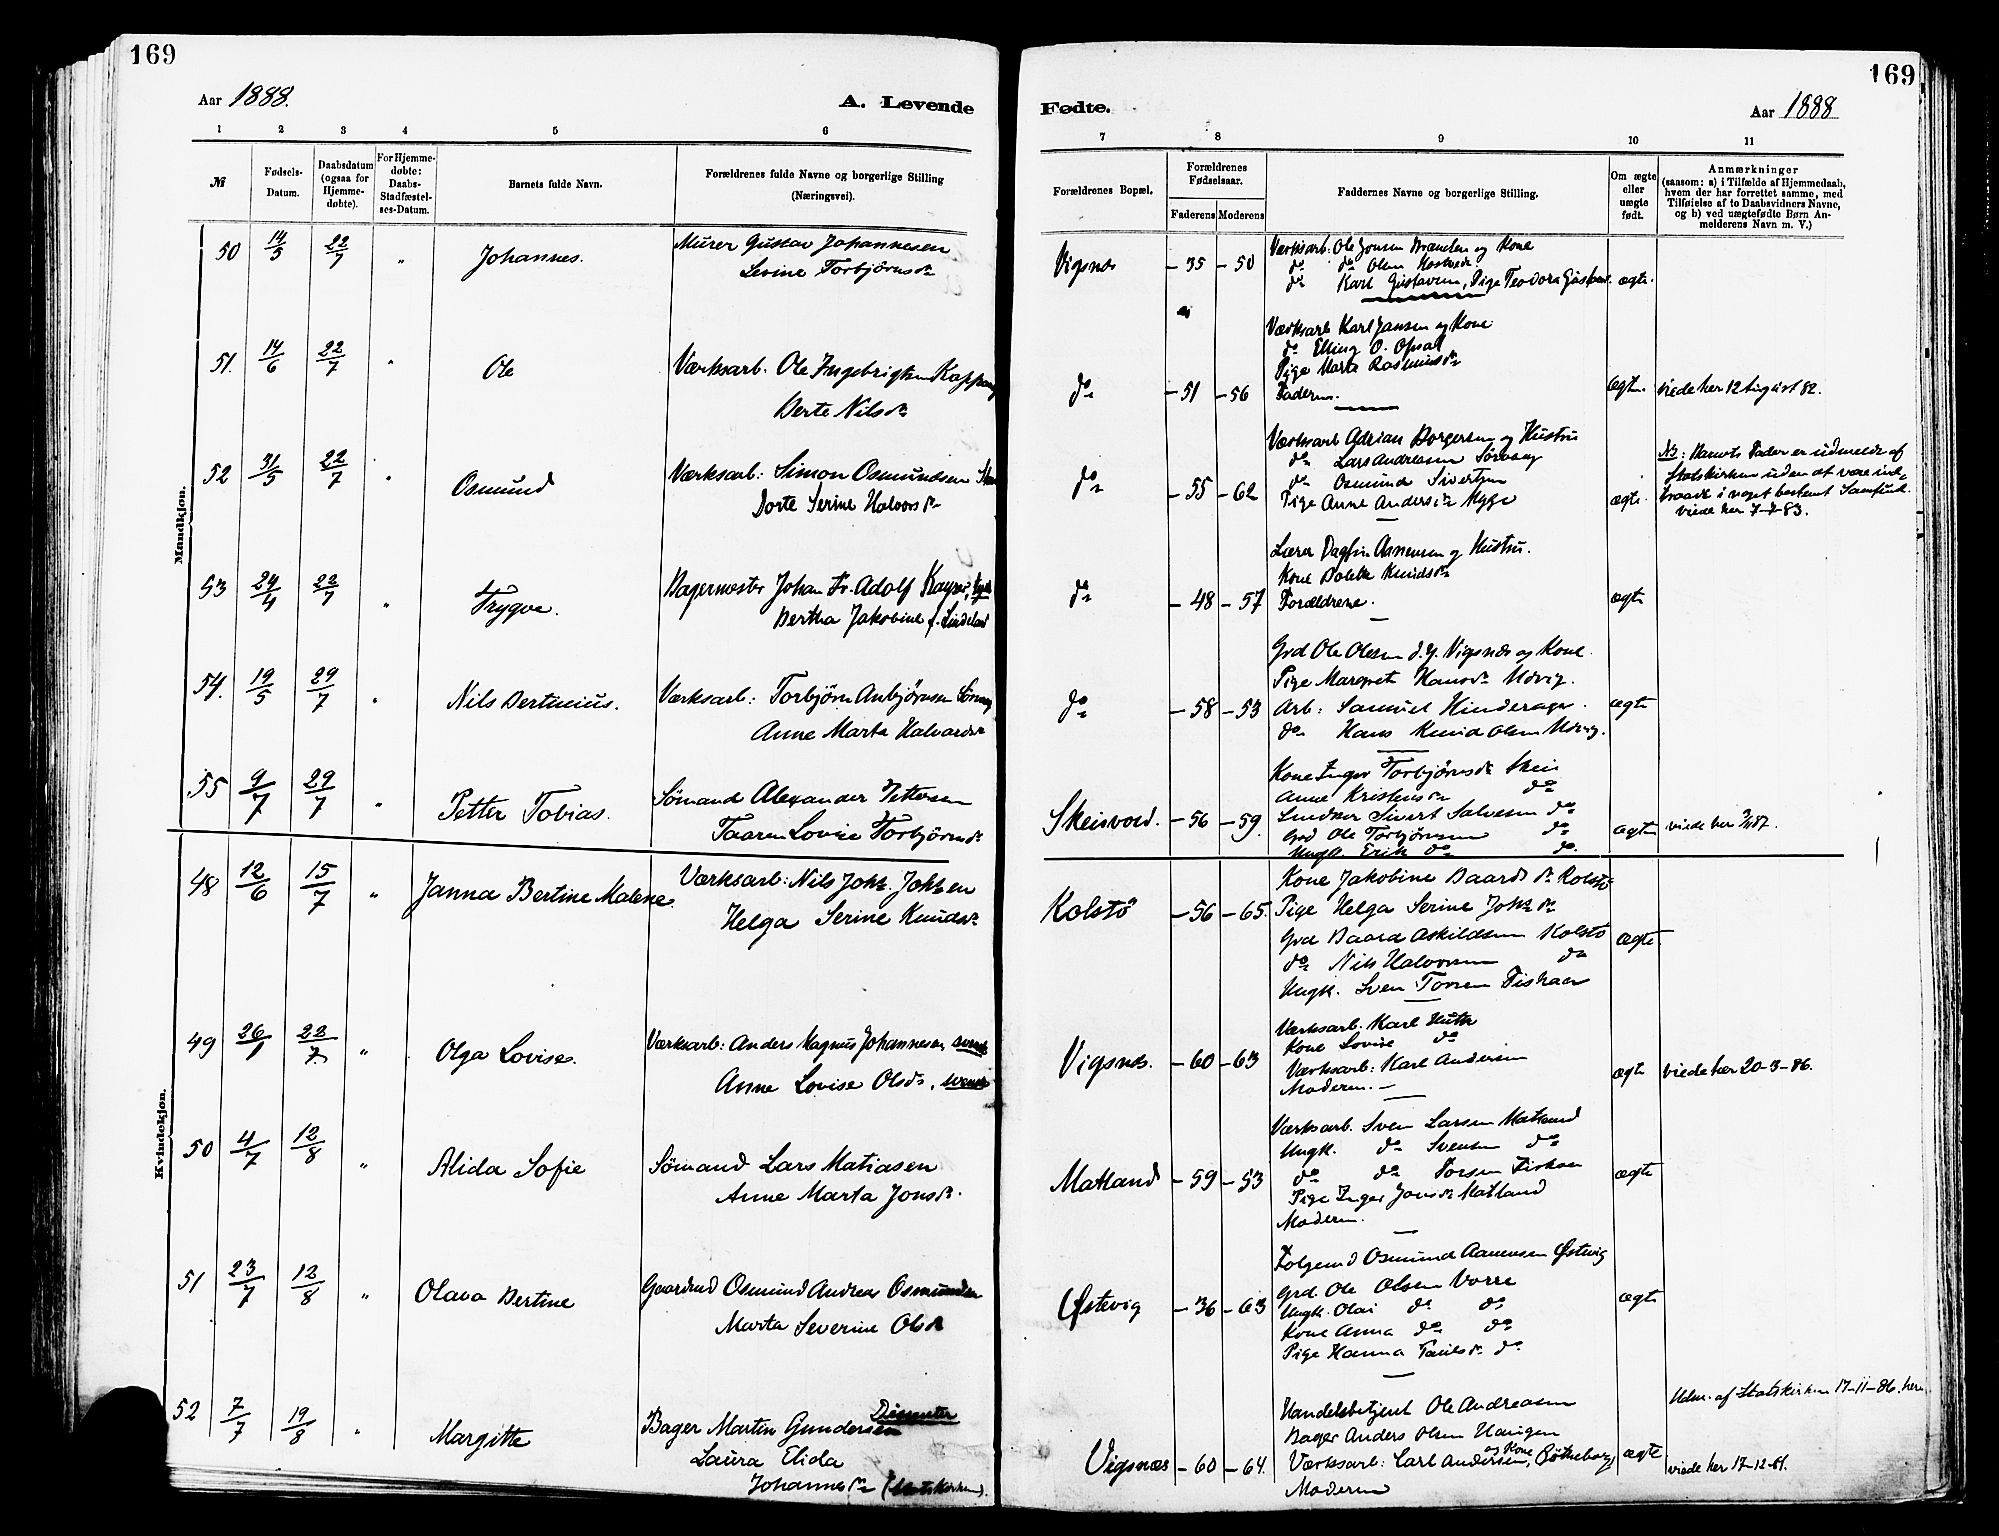 169
Aar 1888.
A. Levende
1 2 3 4 5 6
№
Fødsels-Datum.
Daabsdatum (ogsaa for Hjemme-døbte).
For Hjemme-døbte: Daabs-Stadfæstel-ses-Datum.
Barnets fulde Navn.
Forældrenes fulde Navne og borgerlige Stilling
(Næringsvei).
Mandkjøn.
50 14/5 22/7 " Johannes. Murer Gustav Johannesen
Levine Torbjørnsdr
51. 14/6 22/7 " Ole Værksarb. Ole Ingebrigtsen
Berte Nilsdr
52 31/5 22/7 " Osmund Værksarb: Simon Osmundsen
Dorte Serine Halvorsdr
53 24/4 22/7 " Trygve. Bagermester Johan Fr. Adolf Kayser,
Bertha Jakobine f. Lindeland
54. 19/5 29/7 " Nils Bertinius. Værksarb: Torbjørn Anbjørnsen
Anne Marta Halvardsdr
55 9/7 29/7 " Petter Tobias. Sømand Alexander Pettersen
Taaren Lovise Torbjørnsdr
Kvindekjøn.
48 12/6 15/7 " Janna Bertine Malene Værksarb: Nils Johs. Johsen
Helga Serine Knudsdr
49 26/1 22/7. " Olga Lovise. Værksarb: Anders Magnus Johannesen, svensk
Anne Lovise Olsdr, svensk
50 4/7 12/8 " Alida Sofie Sømand Lars Matiasen
Anne Marta Jonsdr.
51 23/7 12/8 " Olava Bertine Gaardmd Osmund Andreas Osmundsen
Marta Severine Olsdr
52 7/7 19/8 " Margitte Bager Martin Gundersen Dissenter
Laura Elida
Johannesdr (Statskirken).
169
Fødte.
Aar 1888
7 8 9 10 11
Forældrenes Bopæl.
Forældrenes Fødselsaar.
Faderens Moderens
Faddernes Navne og borgerlige Stilling.
Om ægte eller uægte født.
Anmærkninger
(saasom: a) i Tilfælde af Hjemmedaab,
hvem der har forrettet samme, med
Tilføielse af to Daabsvidners Navne,
og b) ved uægtefødte Børn An-
melderens Navn m. V.)
Værksarb. Ole Jonsen og Kone
do do Olsen
Vigsnes - 35 - 50 do Karl Gustavsen, Pige Teodora ægte.
Værksarb Karl Jansen og Kone
do Elling O. Opsal
Pige Marta Rasmusdr
do - 51 - 56 Faderen. ægte. viede her 12 August 82.
Værksarb Adrian Borgersen og Hustru
do Lars Andreasen Sørvaag
do Osmund Sivertsen
do - 55 - 62 Pige Anne Andersdr Mygge ægte.
NB: Barnets Fader er udmeldt af
Statskirken uden at være ind-
traadt i noget bestemt Samfund.
viede her 7-7-83.
Lærer Dagfin Asmensen og Hustru.
Kone Bolette Knudsdr
do - 48 - 57 Forældrene. ægte
Grd Ole Olesen d.y. Vigsnes og Kone
Pige Margrete Hansdr Udvig.
do - 58 - 53 Arb: Samuel Hinderager. ægte
do Hans Knud Olsen Udvig.
Kone Inger Torbjørnsdr Skeie
Anne Kristensdr do
Skeisvold. - 56 - 59. Snedker Sivert Salvesen do
Grd Ole Torbjørnsen do ægte viede her
Ungk. Erik do do.
Kone Jakobine Baardsdr Kolstø
Kolstø - 56 - 65. Pige Helga Serine Johsdr
Grd Baard Askildsen Kolstø ægte
do Nils Halvorsen do
Ungk. Sven Torsen Fiskaa
Værksarb. Karl Huth
Kone Lovise do
Vigsnes. - 60 - 63 Værksarb: Karl Andersen ægte viede her 20-3-86.
Moderen.
Værksarb. Sven Larsen Matland
Ungk. do Svensen do
Matland - 59 - 53 do do Torsen Fiskaa ægte
Pige Inger Jonsdr Matland
Moderen.
Folgemd Osmund Aamunsen Østevig
Grd Ole Olsen Vorre
Østevig - 36 - 63 Ungk. Olai do do ægte
Kone Anna do do
Pige Hanna Paulsdr do
Udm. af Statskirken 17-11-86. her
Handelsbetjent Ole Andreasen
Bager Anders Olsen
Vigsnæs - 60 - 64. Værksarb: Carl Andersen og Kone, Gøtheborg ægte viede her 17-12-81.
Moderen